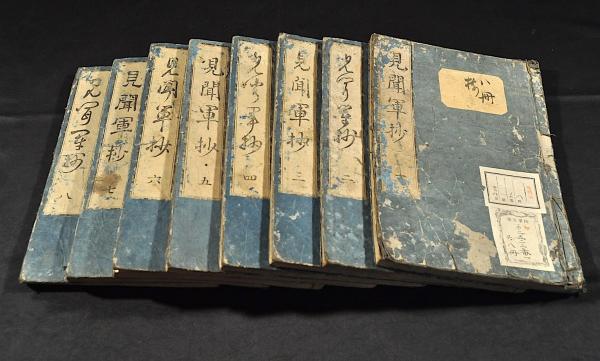 見聞軍抄 一
八冊
見聞軍抄 二
見聞軍抄 三
見聞軍抄 四
見聞軍抄 五
見聞軍抄 六
見聞軍抄 七
見聞軍抄 八